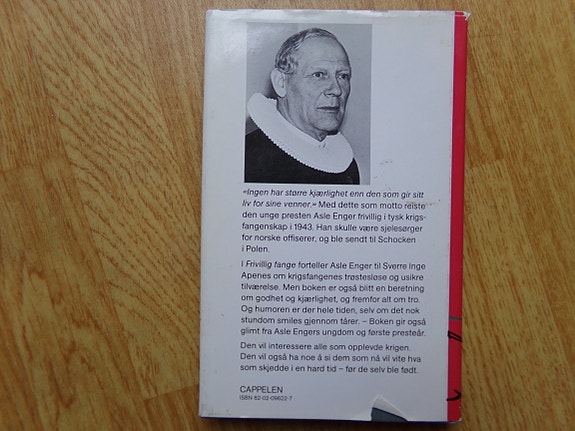 «Ingen har større kjærlighet enn den som gir sitt
liv for sine venner.» Med dette som motto reiste
den unge presten Asle Enger frivillig i tysk krigs-
fangenskap i 1943. Han skulle være sjelesørger
for norske offiserer, og ble sendt til Schocken
i Polen.
I Frivillig fange forteller Asle Enger til Sverre Inge
Apenes om krigsfangenes trøstesløse og usikre
tilværelse. Men boken er også blitt en beretning
om godhet og kjærlighet, og fremfor alt om tro.
Og humoren er der hele tiden, selv om det nok
stundom smiles gjennom tårer. – Boken gir også
glimt fra Asle Engers ungdom og første presteår.
Den vil interessere alle som opplevde krigen.
Den vil også ha noe å si dem som nå vil vite hva
som skjedde i en hard tid – før de selv ble født.
CAPPELEN
ISBN 82-02-09622-7